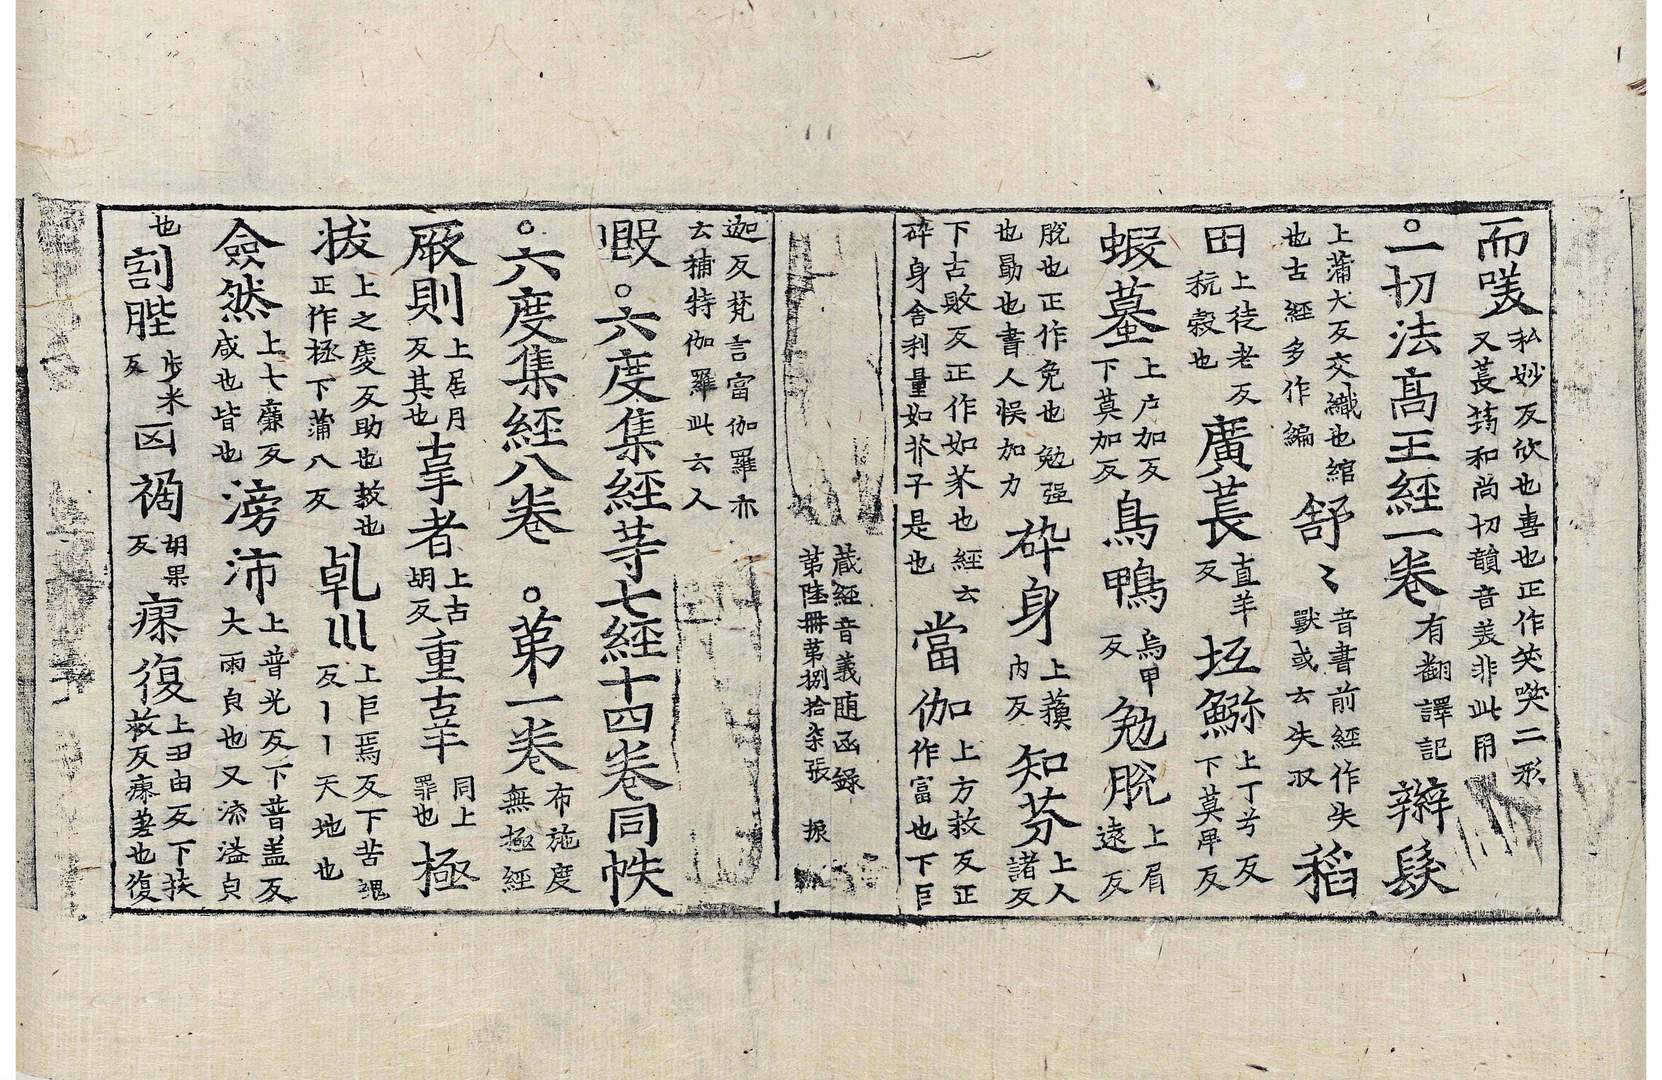 而𠵅私妙反欣也喜也正作笑唉二形
又萇筠和尚切韻音羙非此用
一切法高王經一卷有翻譯記 辮髮
上蒲犬反交織也綰
也古經多作編 舒〻音書前經作失
獸或云失収 稻
田上徒老反
秔穀也 廣萇直羊
反 坘鰯上丁兮反
下莫畢反
蝦蟇上户加反
下莫加反 鳥鴨烏甲
反 勉脫上眉
遠反
脫也正作免也勉强
也勗也書人悮加力 碎身上蘋
内反 知芬上人
諸反
下古敗反正作如芥也經云
碎身舍利量如芥子是也 當伽上方救反正
作富也下巨
藏經音義随函録
第陸冊第捌拾柒張 振
迦反梵言富伽羅亦
云補特伽羅此云人
㕞 六度集經等七經十四卷同帙
六度集經八卷 第一卷布施度
無極經
厥則上居月
反其也 辜者上古
胡反 重辜同上
罪也 極
拔上之𢈔反助也救也
正作拯下蒲八反 乹巛上巨焉反下苦魂
反丨丨天地也
僉然上七廉反
咸也皆也 滂沛上普光反下普盖反
大雨皃也又流溢皃
也 割䏶步米
反 囟禍胡果
反 瘳復上丑由反下扶
救反瘳差也復